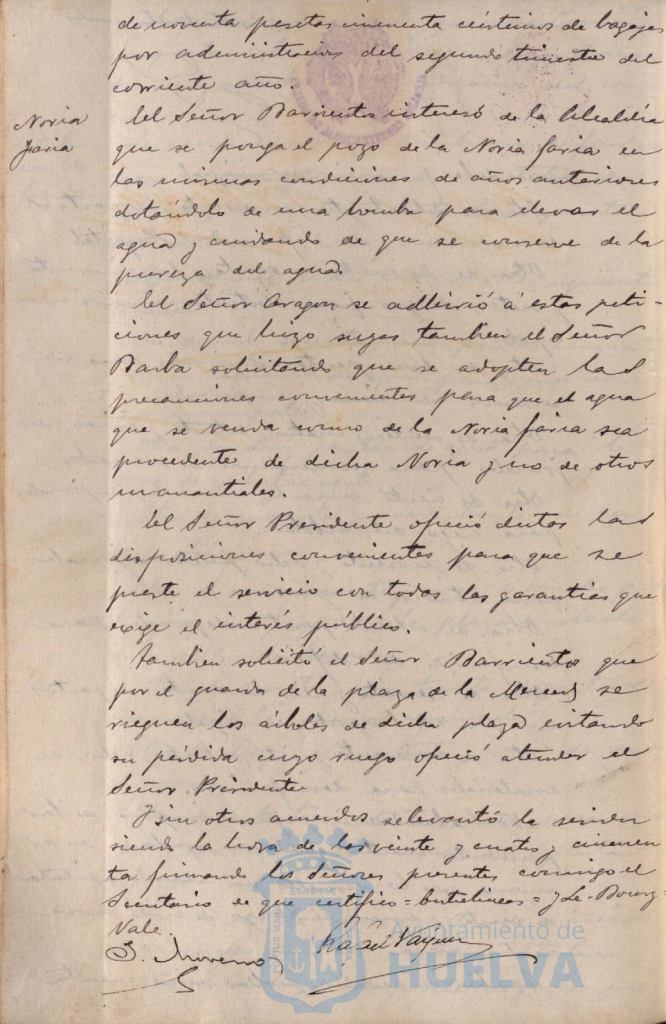 de noventa pesetas cincuenta céntimos de bagajes
por administración del segundo trimestre del
corriente año.
Noria
faria
El Señor Barrientos interesó de la Alcaldía
que se ponga el pozo de la Noria faria en
las mismas condiciones de años anteriores
dotándolo de una bomba para elevar el
agua y cuidando de que se conserve de la
pureza del agua.
El Señor Aragon se adhirió á estas peti-
ciones que hizo suyas tambien el Señor
Barba solicitando que se adopten las
precauciones convenientes para que el agua
que se venda como de la Noria faria sea
procedente de dicha Noria y no de otros
manantiales.
El Señor Presidente ofreció dictar las
disposiciones convenientes para que se
preste el servicio con todas las garantías que
exige el interés público.
Tambien solicitó el Señor Barrientos que
por el guarda de la plaza de la Merced se
rieguen los árboles de dicha plaza evitando
su pérdida cuyo ruego ofreció atender el
Señor Presidente
Y sin otros acuerdos se levantó la sesion
siendo la hora de las veinte y cuatro y cincuen
ta firmando los Señores presentes comigo el
Secretario de que certifico = Entrelineas = y Le-Bourg-
Vale.
J. Moreno
Rafael Vazquez
Ayuntamiento de
HUELVA